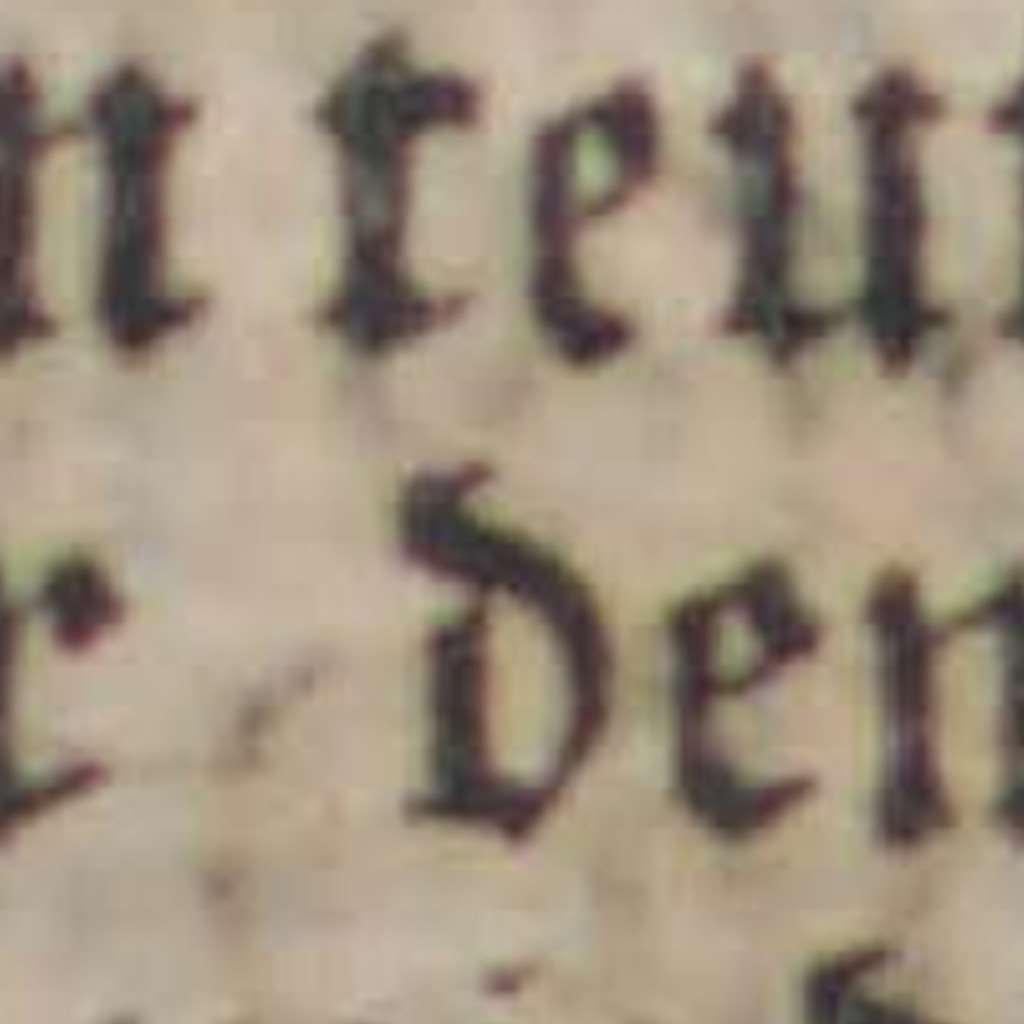 n reu
r den